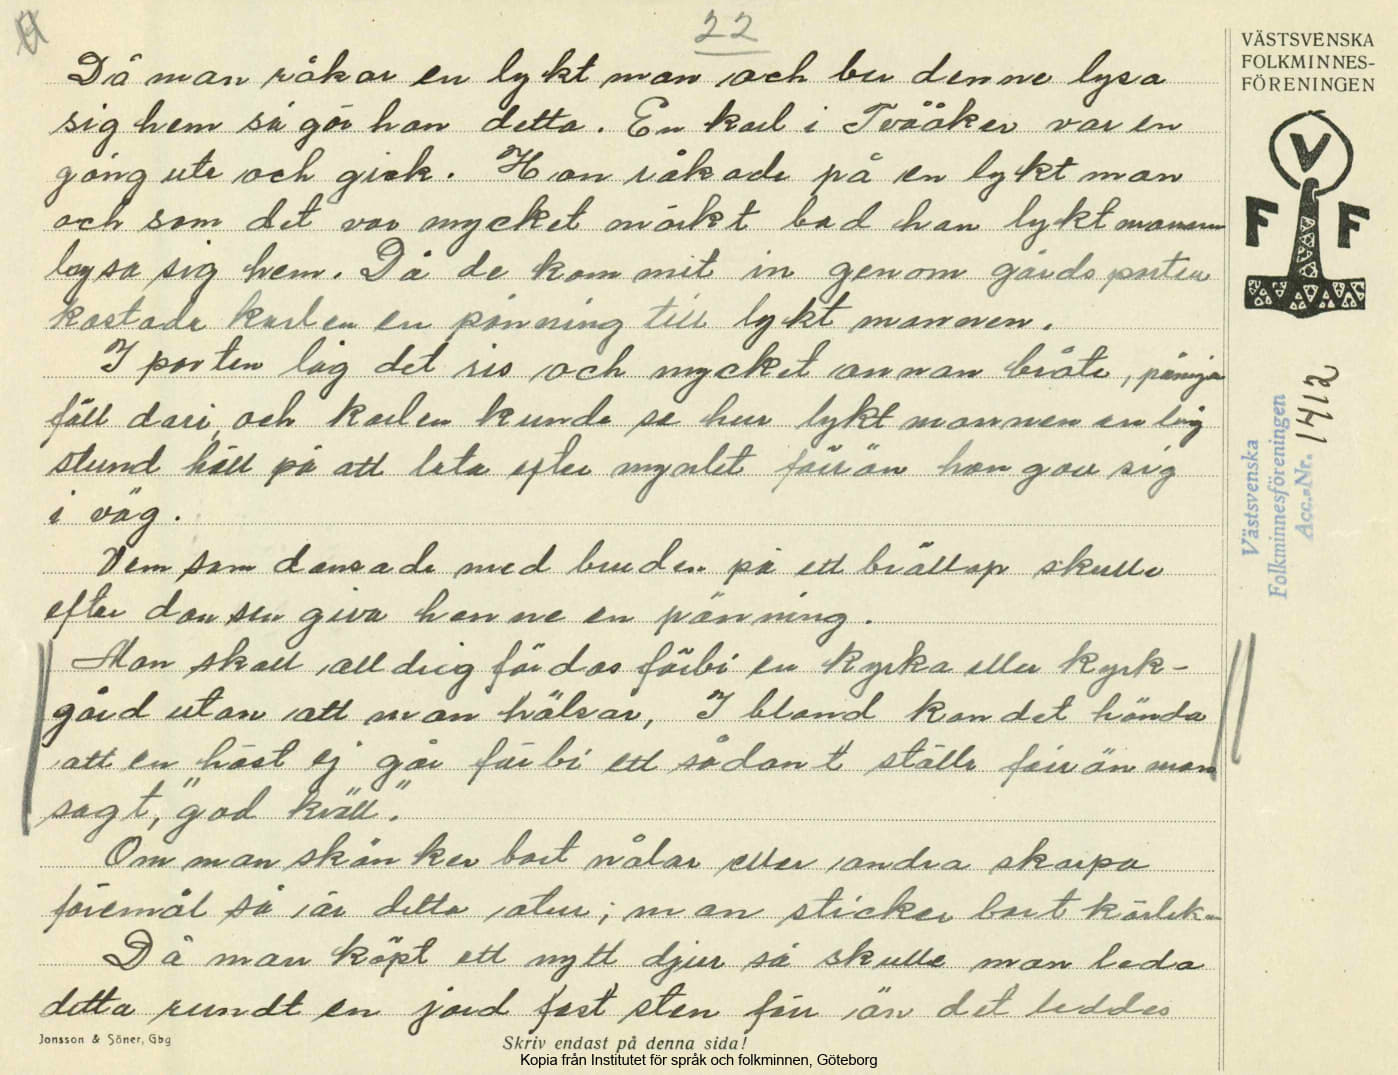 22
Då man råkar en lyktman och ber denne lysa
sig hem så gör han detta. En karl i Tvååker var en
gång ute och gick. Han råkade på en lyktman
och som det var mycket mörkt bad han lyktmannen
lysa sig hem. Då de kommit in genom gårdsporten
kastade karlen en pänning till lyktmannen.
I porten låg det ris och mycket annan bråte, pänningen
föll däri, och karlen kunde se hur lyktmannen en lång
stund höll på att leta efter myntet förrän han gav sig
i väg.
Vem som dansade med bruden på ett bröllop skulle
efter dansen giva henne en pänning.
Man skall alldrig färdas förbi en kyrka eller kyrk-
gård utan att man hälsar, I bland kan det hända
att en häst ej går förbi ett sådant ställe förrän man
sagt, "god kväll".
Om man skänker bort nålar eller andra skarpa
föremål så är detta otur; man sticker bort kärleken
Då man köpt ett nytt djur så skulle man leda
detta rundt en jord fast sten förr än det leddes
Jonsson & Söner, Gbg
Skriv endast på denna sida!
Kopia från Institutet för språk och folkminnen, Göteborg
VÄSTSVENSKA
FOLKMINNES-
FÖRENINGEN
V
F F
Västsvenska
Folkminnesföreningen
Acc.-Nr. 1412